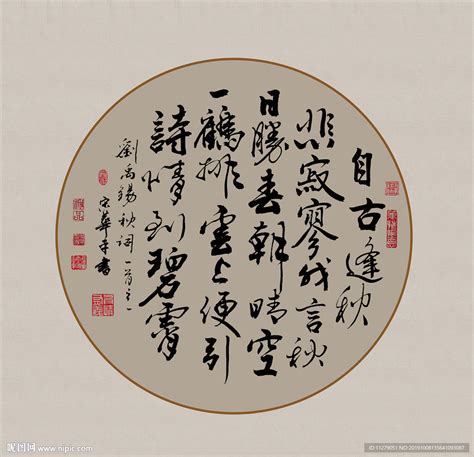 自古逢秋
悲寂寥我言秋
日勝春朝晴空
一鶴排雲上便引
詩情到碧霄
劉禹錫秋詞一首之一
宋華平書
昵图网 www.nipic.com